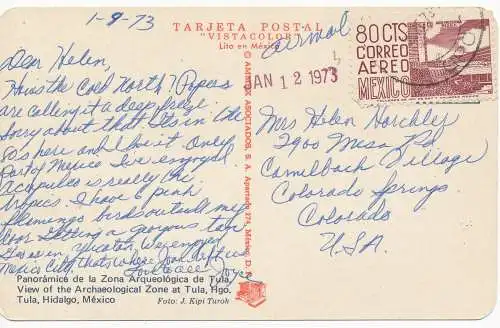 1-9-73
TARJETA POSTAL
"VISTACOLOR"
Lito en México
airmail
80 CTS
CORREO
AEREO
MEXICO
JAN 12 1973
Dear Helen,
How's the Cold North? Papers
are calling it a deep freeze.
Sorry about that. It's in the
80's here and I love it. Only
part of Mexico I've enjoyed
Acapulco is really the
tropics. I have 6 pink
flamingo birds outside my
door. Getting a gorgeous tan
here in Yucatan. We enjoyed
Mexico City, that's where
Love to all
Joyce
© AMMEX ASOCIADOS, S. A. Apartado 274, México, D. F.
Mrs Helen Horchler
2900 Mesa Rd
Camelback Village
Colorado Springs
Colorado
U.S.A.
Panorámica de la Zona Arqueológica de Tula,
View of the Archaeological Zone at Tula, Hgo.
Tula, Hidalgo, México
Foto: J. Kipi Turok